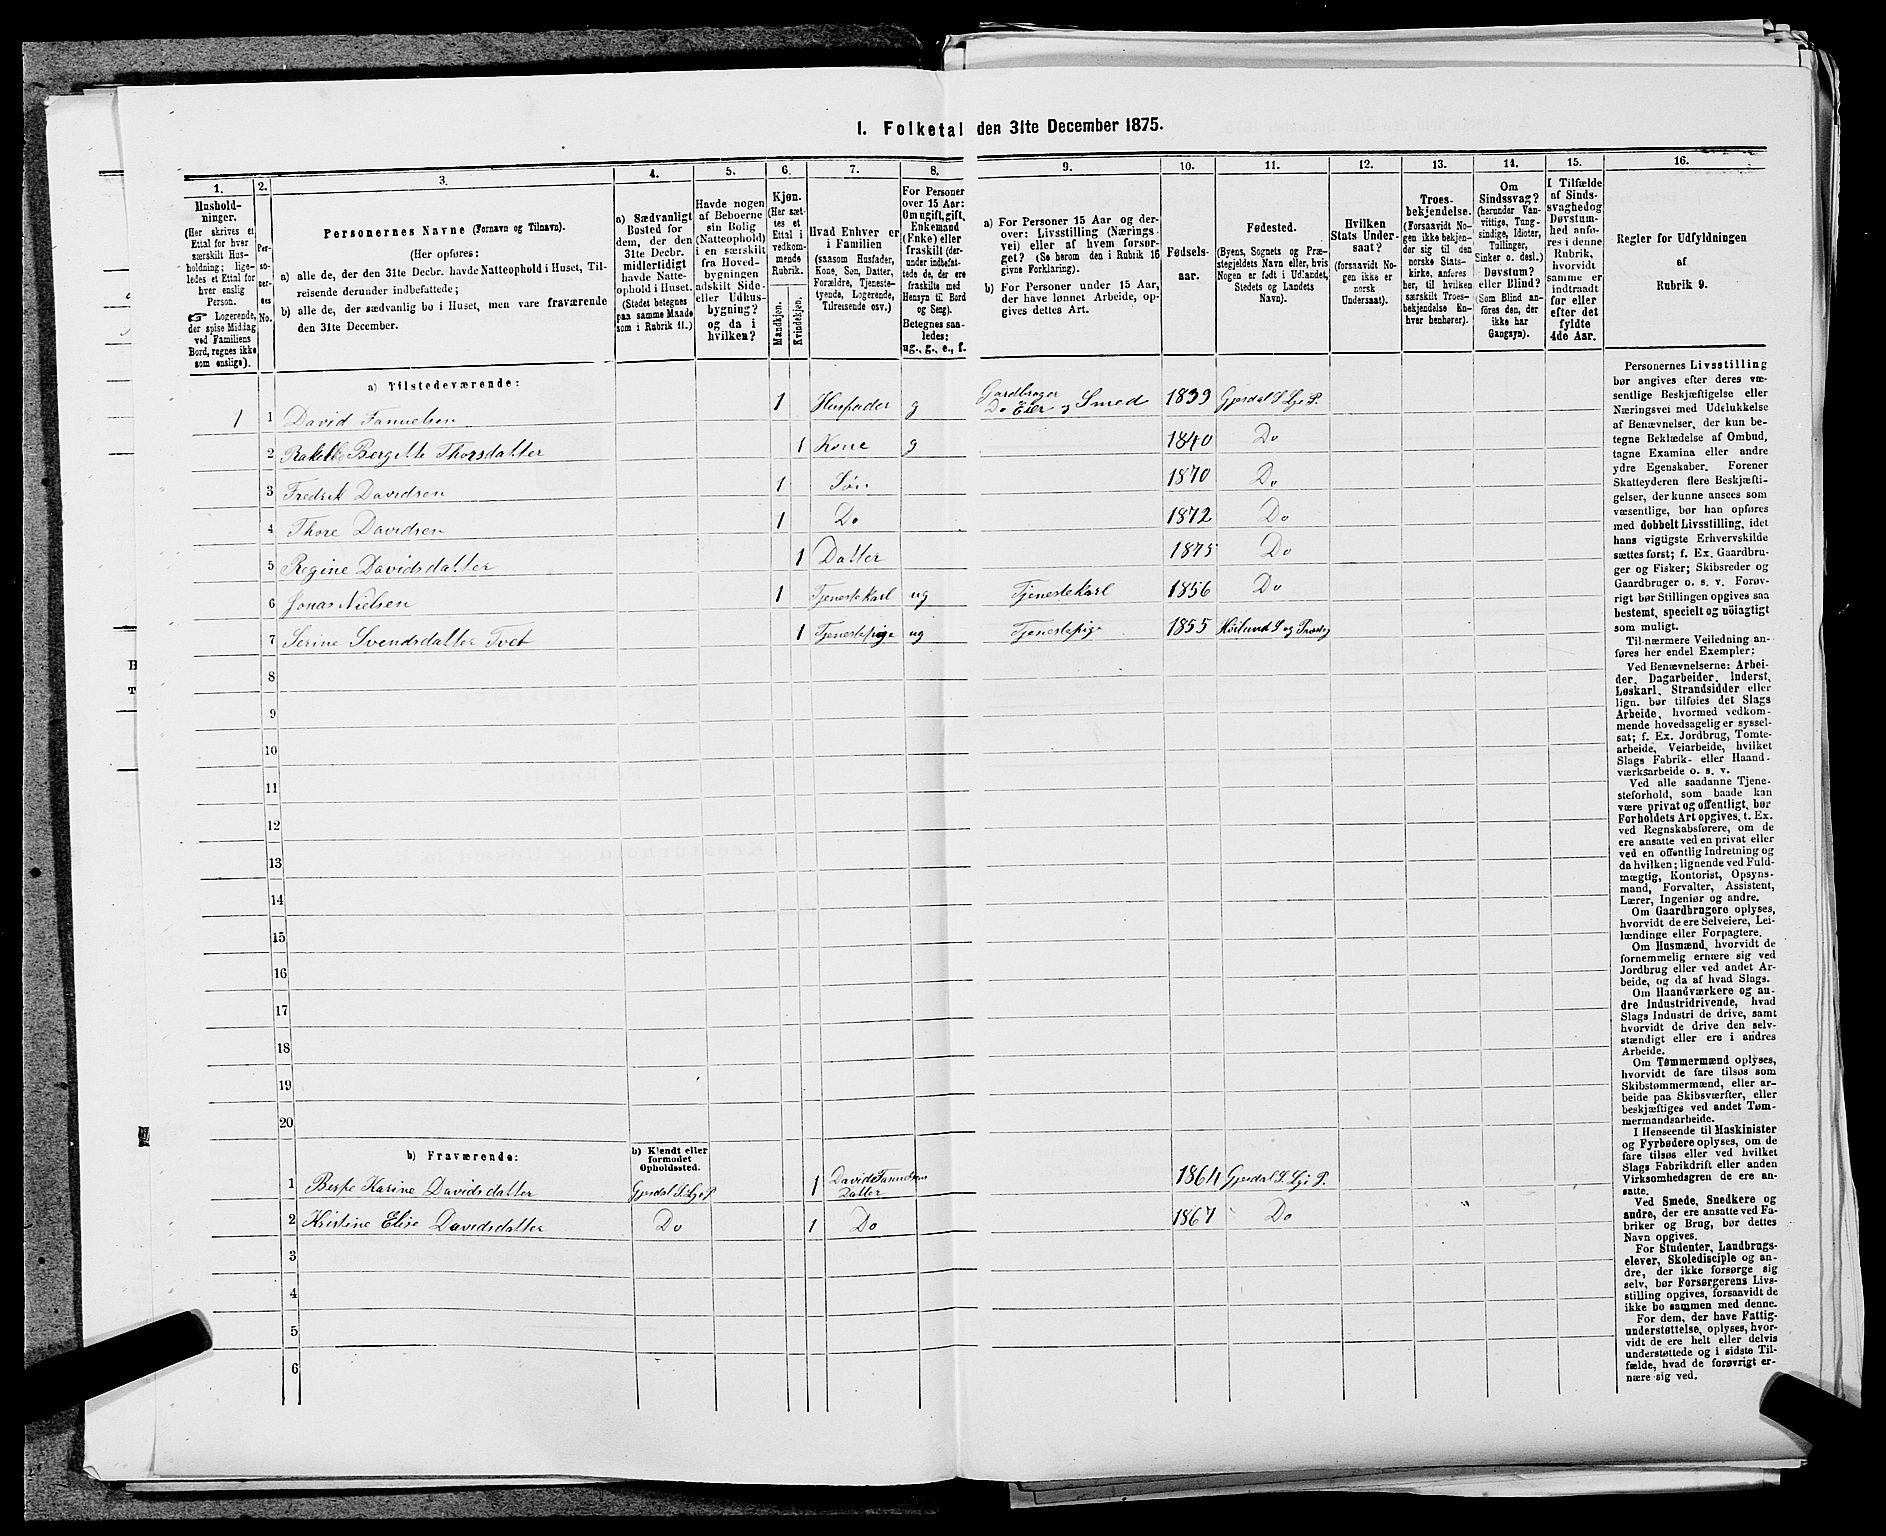 I. Folketal den 31te December 1875.
1. 2. 3. 4. 5. 6. 7. 8. 9. 10. 11. 12. 13. 14. 15. 16.
Hushold-
ninger.
(Her skrives et
Ettal for hver
særskilt Hus-
holdning; lige-
ledes et Ettal for
hver enslig
Person.
☞ Logerende,
der spise Middag
ved Familiens
Bord, regnes ikke
som enslige).
Per-
so-
ner-
nes
No.
Personernes Navne (Fornavn og Tilnavn).
(Her opføres:
a) alle de, der den 31te Decbr. havde Natteophold i Huset, Til-
reisende derunder indbefattede;
b) alle de, der sædvanlig bo i Huset, men vare fraværende
den 31te December.
a) Sædvanligt
Bosted for
dem, der den
31te Decbr.
midlertidigt
havde Natte-
ophold i Huset.
(Stedet betegnes
paa samme Maade
som i Rubrik 11.)
Havde nogen
af Beboerne
sin Bolig
(Natteophold)
i en særskilt
fra Hoved-
bygningen
adskilt Side-
eller Udhus-
bygning?
og da i
hvilken?
Kjøn.
(Her sæt-
tes et
Ettal i
vedkom-
mende
Rubrik.
Mandkjøn.
Kvindekjøn.
Hvad Enhver er
i Familien
(saasom Husfader,
Kone, Søn, Datter,
Forældre, Tjeneste-
tyende, Logerende,
Tilreisende osv.)
For Personer
over 15 Aar:
Om ugift, gift,
Enkemand
(Enke) eller
fraskilt (der-
under indbefat-
tede de, der ere
fraskilte med
Hensyn til Bord
og Seng).
Betegnes saa-
ledes:
ug., g., e., f.
a) For Personer 15 Aar og der-
over: Livsstilling (Nærings-
vei) eller af hvem forsør-
get? (Se herom den i Rubrik 16
givne Forklaring).
b) For Personer under 15 Aar,
der have lønnet Arbeide, op-
gives dettes Art.
Fødsels-
aar.
Fødested.
(Byens, Sognets og Præ-
stegjeldets Navn eller, hvis
Nogen er født i Udlandet,
Stedets og Landets
Navn).
Hvilken
Stats Under-
saat?
(forsaavidt No-
gen ikke er
norsk
Undersaat).
Troes-
bekjendelse.
(Forsaavidt No-
gen ikke bekjen-
der sig til den
norske Stats-
kirke, anføres
her, til hvilken
særskilt Troes-
bekjendelse En-
hver henhører).
Om
Sindssvag?
(herunder Van-
vittige, Tung-
sindige, Idioter,
Tullinger,
Sinker o. desl.)
Døvstum?
eller Blind?
(Som Blind an-
føres den, der
ikke har
Gangsyn).
I Tilfælde
af Sinds-
svaghed og
Døvstum-
hed anfø-
res i denne
Rubrik,
hvorvidt
samme er
indtraadt
før eller
efter det
fyldte
4de Aar.
Regler for Udfyldningen
af
Rubrik 9.
a) Tilstedeværende:
1 1 David Fanuelsen 1 Husfader g Gardbruger
Do Eier og Smed 1839 Gjesdal S. Lye P.
2 Rakel Bergitte Thorsdatter 1 Kone g 1840 Do
3 Fredrik Davidsen 1 Søn 1870 Do
4 Thore Davidsen 1 Do 1872 Do
5 Regine Davidsdatter 1 Datter 1875 Do
6 Jonas Nielsen 1 Tjenestekarl ug Tjenestekarl 1856 Do
7 Serine Svendsdatter Tvet 1 Tjenestepige ug Tjenestepige 1855 S og
8
9
10
11
12
13
14
15
16
17
18
19
20
b) Fraværende:
b) Kjendt eller
formodet
Opholdssted.
1 Berthe Karine Davidsdatter Gjesdal S. Lye P 1 David Fanuelsens
Datter 1864 Gjesdal S. Lye P.
2 Kristine Elise Davidsdatter Do 1 Do 1867 Do
3
4
5
6
Personernes Livsstilling
bør angives efter deres væ-
sentlige Beskjæftigelse eller
Næringsvei med Udelukkelse
af Benævnelser, der kun be-
tegne Beklædelse af Ombud,
tagne Examina eller andre
ydre Egenskaber. Forener
Skatteyderen flere Beskjæfti-
gelser, der kunne ansees som
væsentlige, bør han opføres
med dobbelt Livsstilling, idet
hans vigtigste Erhvervskilde
sættes først; f. Ex. Gaardbru-
ger og Fisker; Skibsreder og
Gaardbruger o. s. v. Forøv-
rigt bør Stillingen opgives saa
bestemt, specielt og nöiagtigt
som muligt.
Til nærmere Veiledning an-
føres her endel Exempler:
Ved Benævnelserne: Arbei-
der, Dagarbeider, Inderst,
Løskarl, Strandsidder eller
lign. bør tilføies det Slags
Arbeide, hvormed vedkom-
mende hovedsagelig er syssel-
sat; f. Ex. Jordbrug, Tomte-
arbeide, Veiarbeide, hvilket
Slags Fabrik- eller Haand-
værksarbeide o. s. v.
Ved alle saadanne Tjene-
steforhold, som baade kan
være privat og offentligt, bør
Forholdets Art opgives, t. Ex.
ved Regnskabsførere, om de
ere ansatte ved en privat eller
ved en offentlig Indretning og
da hvilken; lignende ved Fuld-
mægtig, Kontorist, Opsyns-
mand, Forvalter, Assistent,
Lærer, Ingeniør og andre.
Om Gaardbrugere oplyses,
hvorvidt de ere Selveiere, Lei-
lændinge eller Forpagtere.
Om Husmænd, hvorvidt de
fornemmelig ernære sig ved
Jordbrug eller ved andet Ar-
beide, og da af hvad Slags.
Om Haandværkere og an-
dre Industridrivende, hvad
Slags Industri de drive, samt
hvorvidt de drive den selv-
stændigt eller ere i andres
Arbeide.
Om Tømmermænd oplyses,
hvorvidt de fare tilsøs som
Skibstømmermænd, eller ar-
beide paa Skibsværfter, eller
beskjæftiges ved andet Tøm-
mermandsarbeide.
I Henseende til Maskinister
og Fyrbødere oplyses, om de
fare tilsøs eller ved hvilket
Slags Fabrikdrift eller anden
Virksomhedsgren de ere an-
satte.
Ved Smede, Snedkere og
andre, der ere ansatte ved Fa-
briker og Brug, bør dettes
Navn opgives.
For Studenter, Landbrugs-
elever, Skoledisciple og an-
dre, der ikke forsørge sig
selv, bør Forsørgerens Livs-
stilling opgives, forsaavidt de
ikke bo sammen med denne.
For dem, der have Fattig-
understøttelse, oplyses, hvor-
vidt de ere helt eller delvis
understøttede og i sidste Til-
fælde, hvad de forøvrigt er-
nære sig ved.